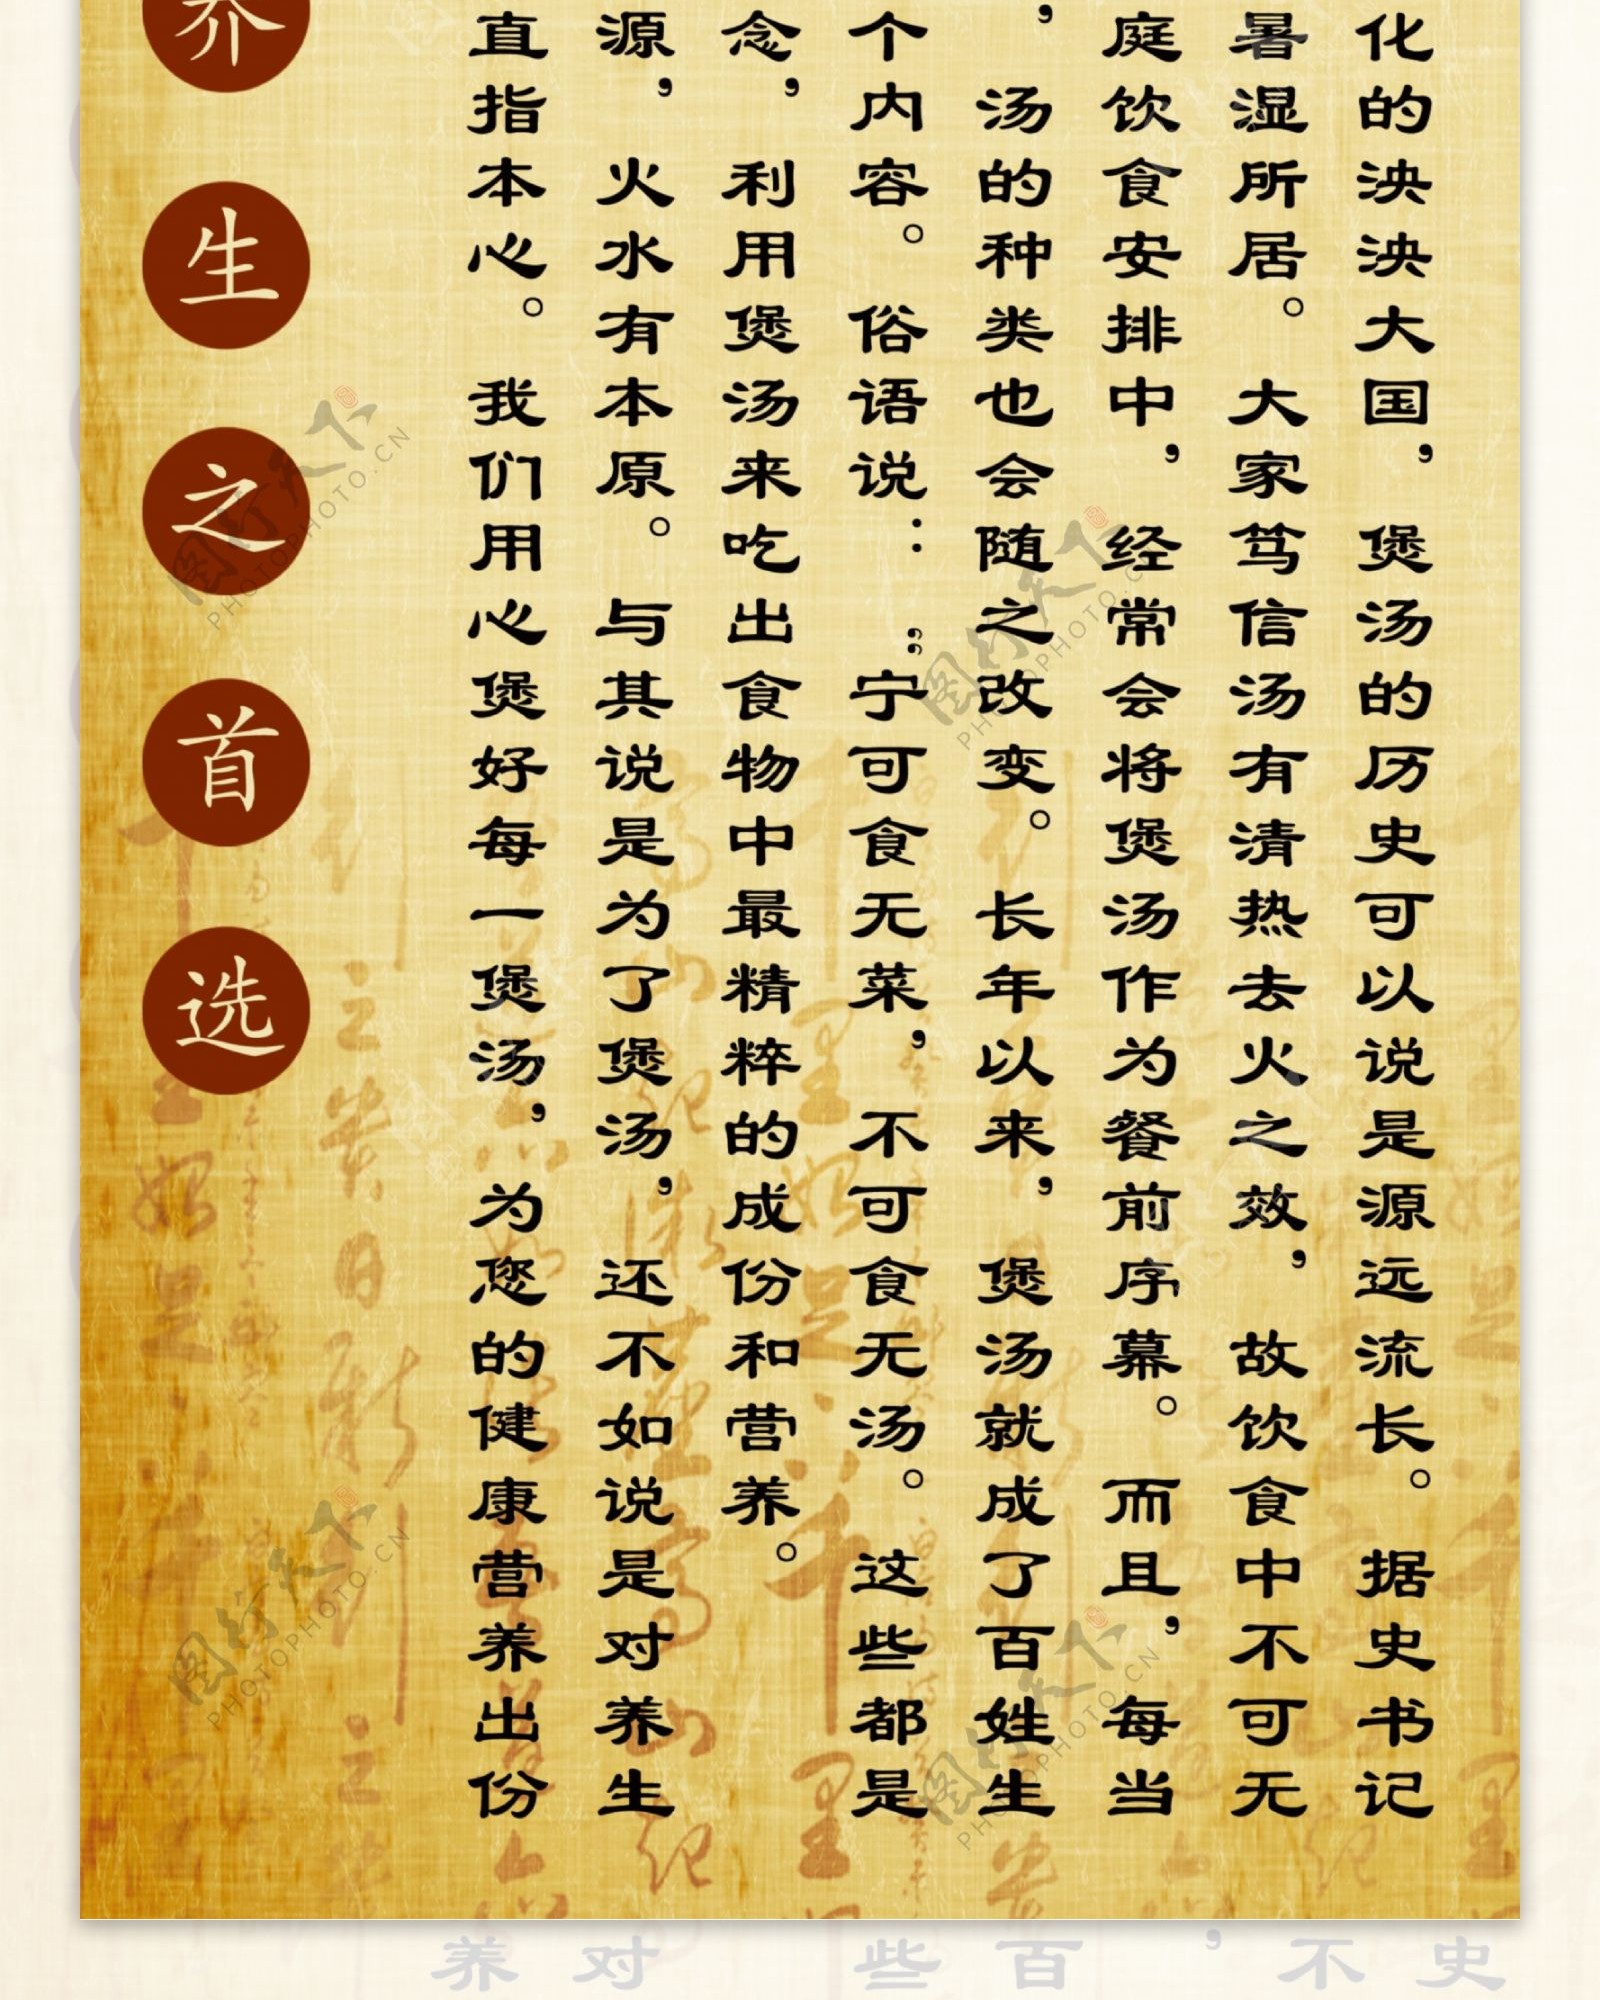 化的泱泱大国，煲汤的历史可以说是源远流长。据史书记
暑湿所居。大家笃信汤有清热去火之效，故饮食中不可无
庭饮食安排中，经常会将煲汤作为餐前序幕。而且，每当
，汤的种类也会随之改变。长年以来，煲汤就成了百姓生
个内容。俗语说：“宁可食无菜，不可食无汤。这些都是
念，利用煲汤来吃出食物中最精粹的成份和营养。
源，火水有本原。与其说是为了煲汤，还不如说是对养生
直指本心。我们用心煲好每一煲汤，为您的健康营养出份
生之首选
史不，百些对养
图行天下 PHOTOPHOTO.CN
图行天下 PHOTOPHOTO.CN
图行天下 PHOTOPHOTO.CN
图行天下 PHOTOPHOTO.CN